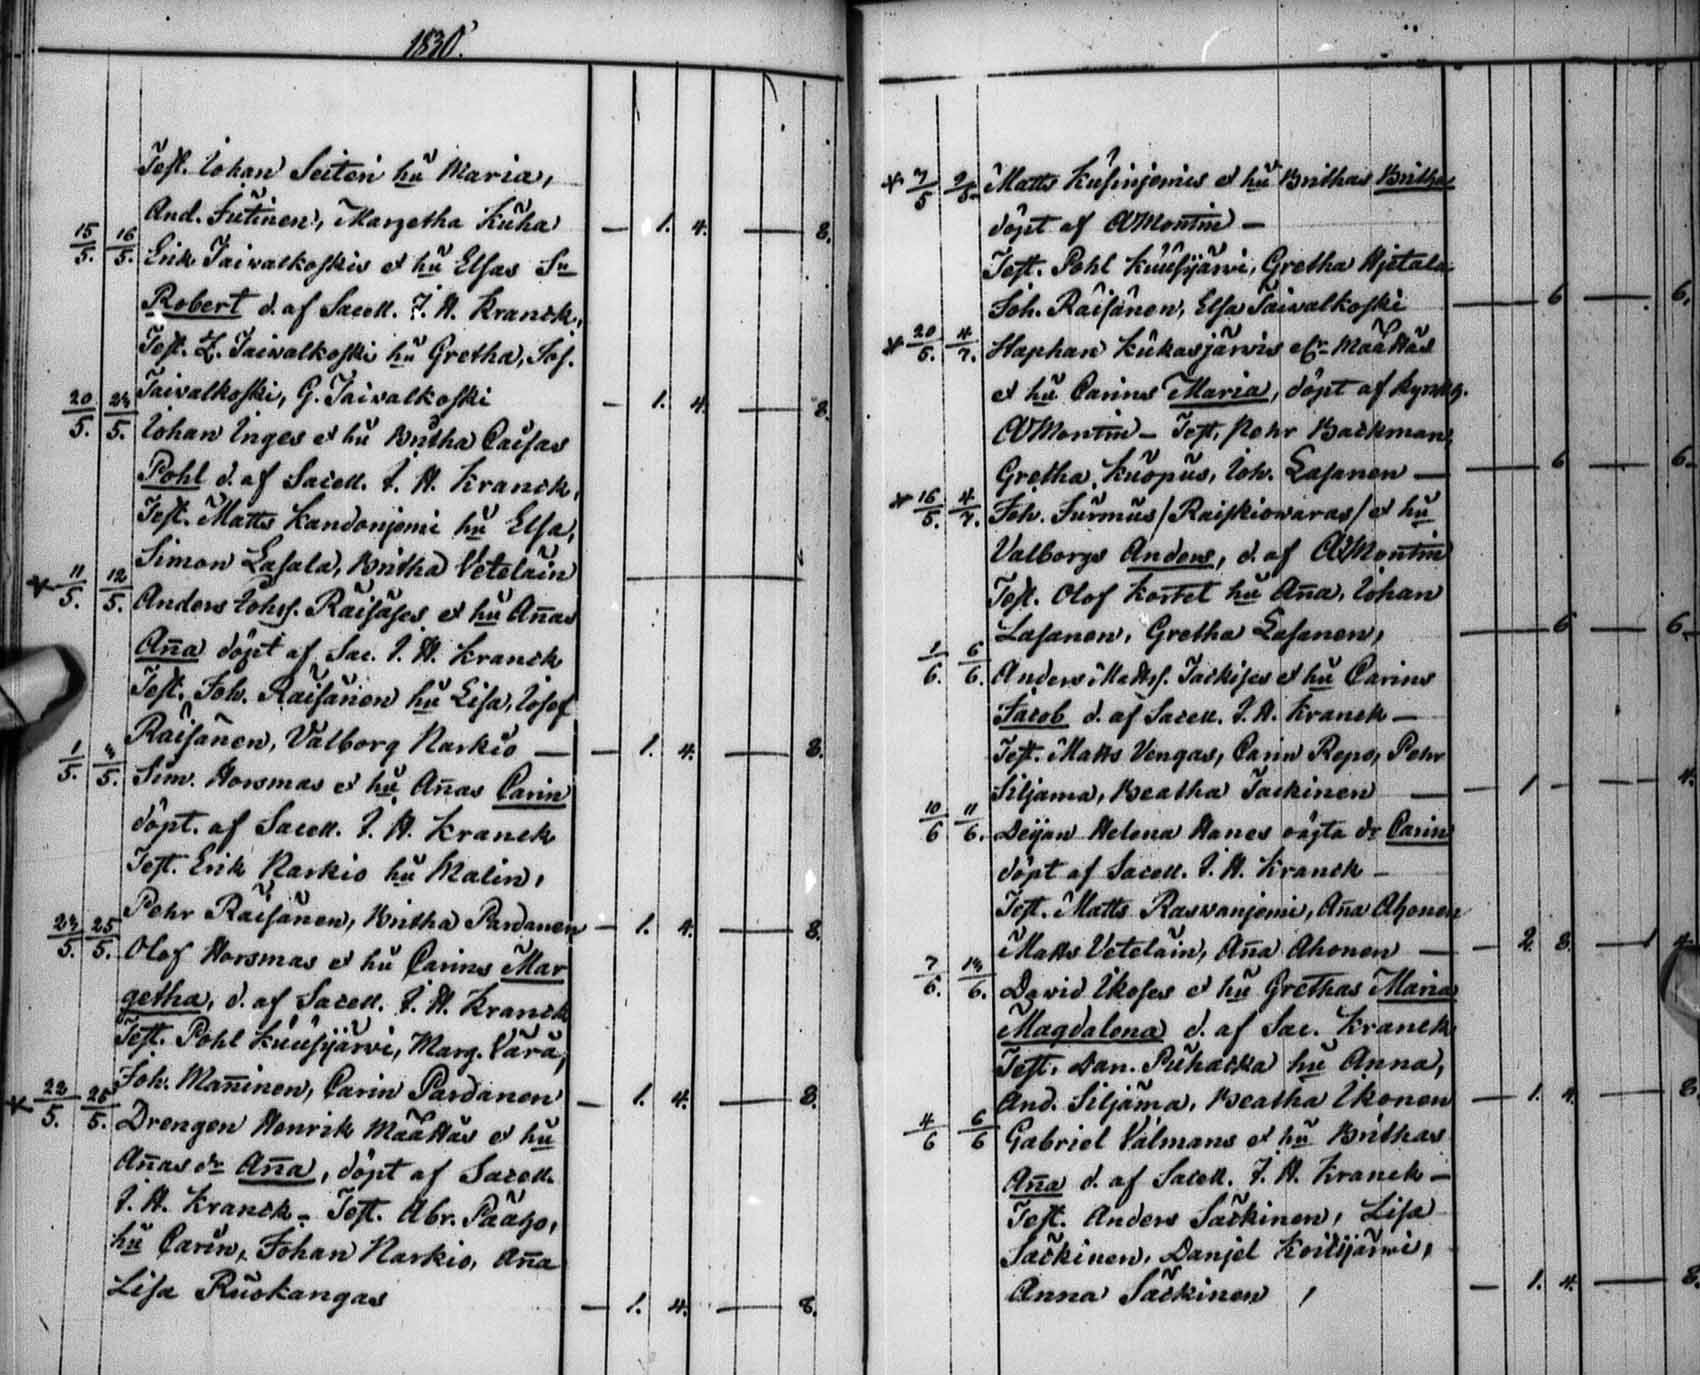 1830.
Test. Johan Seiten hu Maria,
And. Sutinen, Margetha Kuha — 1. 4. — 8.
15/5. 16/5. Erik Taivalkoskis et hu Elsas Sn
Robert d. af Sacell. J. H. Kranck,
Test. Z. Taivalkoski hu Gretha, Jos.
Taivalkoski, G. Taivalkoski — 1. 4. — 8.
20/5. 23/5. Johan Inges et hu Britha Caisas
Pohl d. af Sacell. J. H. Kranck,
Test. Matts Kandonjemi hu Elsa,
Simon Lasala, Britha Vetelain
* 11/5. 12/5. Anders Johss. Räisäses et hu Añas
Aña döpt af Sac. J. H. Kranck
Test. Joh. Räisänen hu Lisa, Josef
Räisänen, Valborg Karkio — 1. 4. — 8.
1/5. 3/5. Sim. Horsmas et hu Añas Carin
döpt. af Sacell. J. H. Kranck
Test. Erik Karkio hu Malin,
Pehr Räisänen, Britha Pardanen — 1. 4. — 8.
23/5. 25/5. Olof Horsmas et hu Carins Mar
getha, d. af Sacell. J. H. Kranck
Test. Pohl Kuusijärvi, Marg. Vara,
Joh. Mañinen, Carin Pardanen — 1. 4. — 8.
* 22/5. 25/5. Drengen Henrik Määttäs et hu
Añas dr Aña, döpt af Sacell.
J. H. Kranck — Test. Abr. Pääho,
hu Carin, Johan Karkio, Aña
Lisa Ruokangas — 1. 4. — 8.
* 7/5 9/5 Matts Kusinjemis et hu Brithas Britha
döpt af AMontin —
Test. Pohl Kuusijärvi, Gretha Hjetala
Joh. Räisänen, Elsa Taivalkoski — 6 — 6.
* 20/5. 4/7. Staphan Kukasjärvis Määttäs
et hu Carins Maria, döpt af
AMontin — Test. Pehr Backman,
Gretha Kuopus, Joh. Lasanen — 6 — 6.
* 16/5. 4/7. Joh. Surmus /Raiskiowaras/ et hu
Valborgs Anders, d. af AMontin
Test. Olof Kortet hu Aña, Johan
Lasanen, Gretha Lasanen, — 6 — 6.
1/6. 6/6. Anders Mattss. Jackises et hu Carins
Jacob d. af Sacell. J. H. Kranck —
Test. Matts Vengas, Carin Repo, Pehr
Siljama, Beatha Jackinen — 1 — 4.
10/6 11/6. Deijan Helena Hanes oägta dr Carin
döpt af Sacell. J. H. Kranck —
Test. Matts Rasvanjemi, Aña Ahonen
Matts Vetelain, Aña Ahonen — 2. 8. — 1 4
7/6. 13/6. David Ikoses et hu Grethas Maria
Magdalena d. af Sac. Kranck
Test. Dan. Puhacka hu Anna,
And. Siljäma, Beatha Ikonen — 1. 4. — 8.
4/6 6/6 Gabriel Välmans et hu Brithas
Aña d. af Sacell. J. H. Kranck —
Test. Anders Säckinen, Lisa
Säckinen, Danjel Koilijärvi,
Anna Säckinen — 1. 4. — 8.